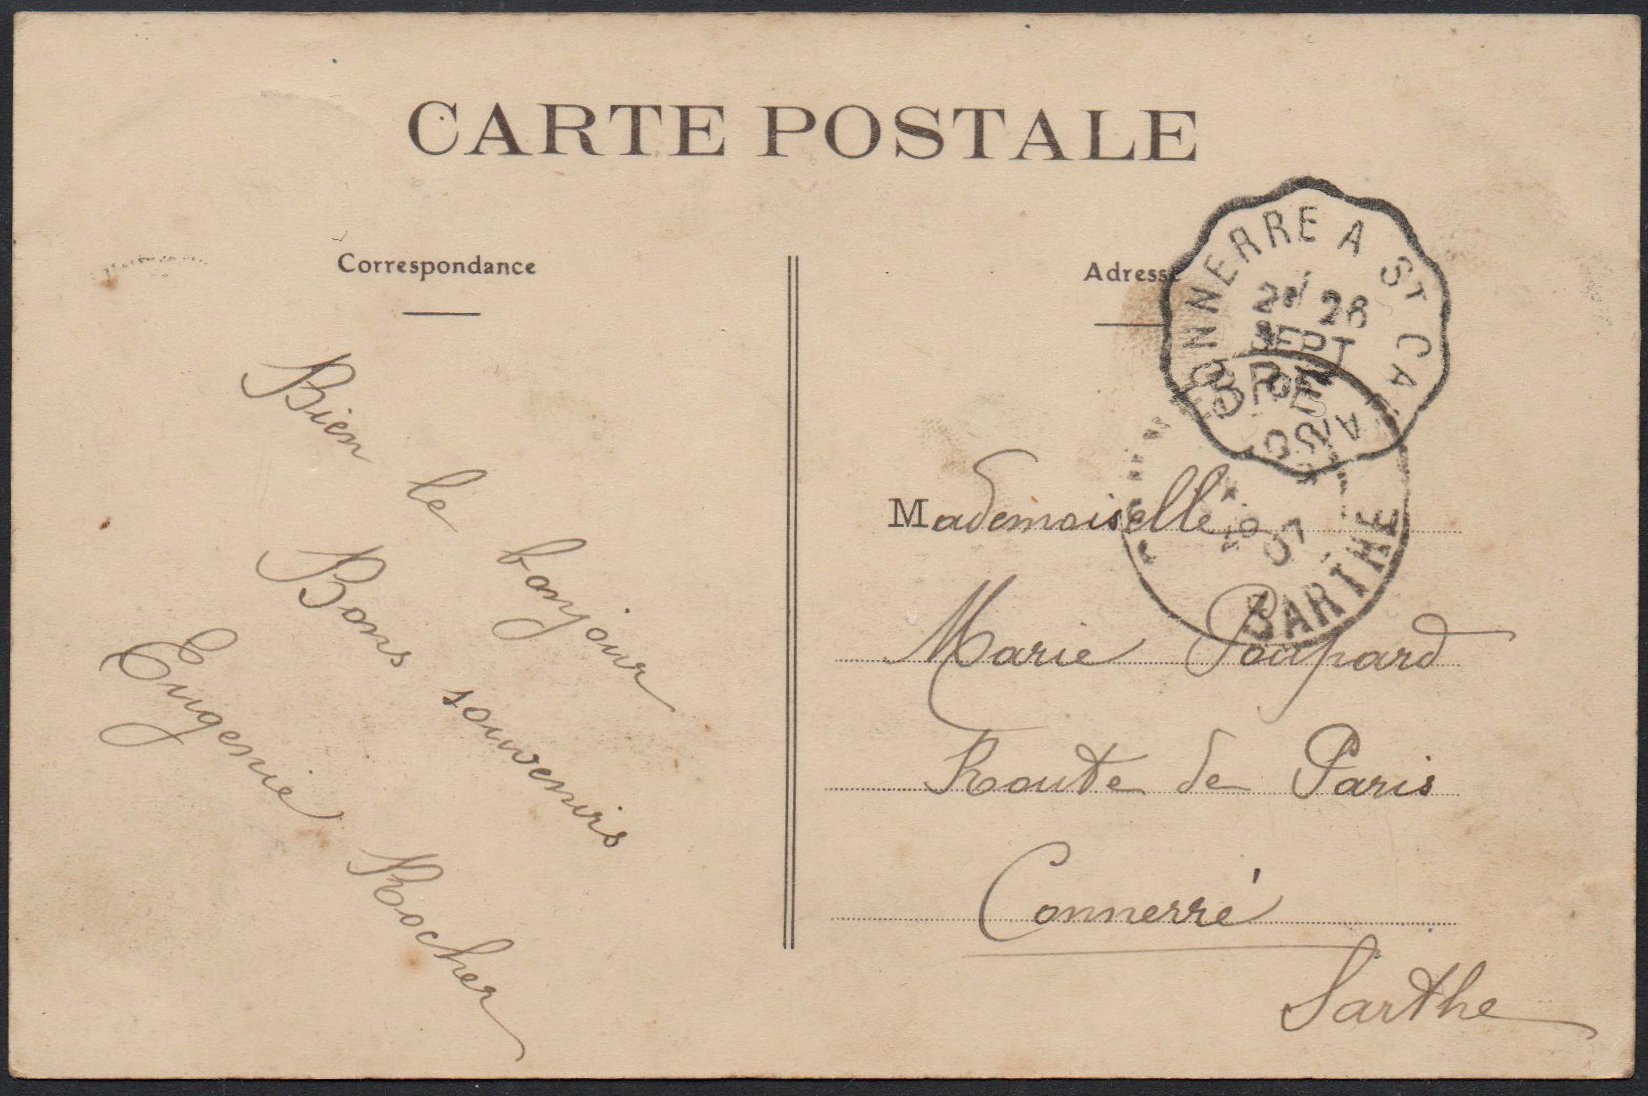 CARTE POSTALE
Correspondance
Bien le bonjour
Bons souvenirs
Eugenie Rocher
Adresse
Mademoiselle
Marie Poupard
Route de Paris
Connerré
Sarthe
ONNERRE A ST CA
28
SEPT
07
SARTHE